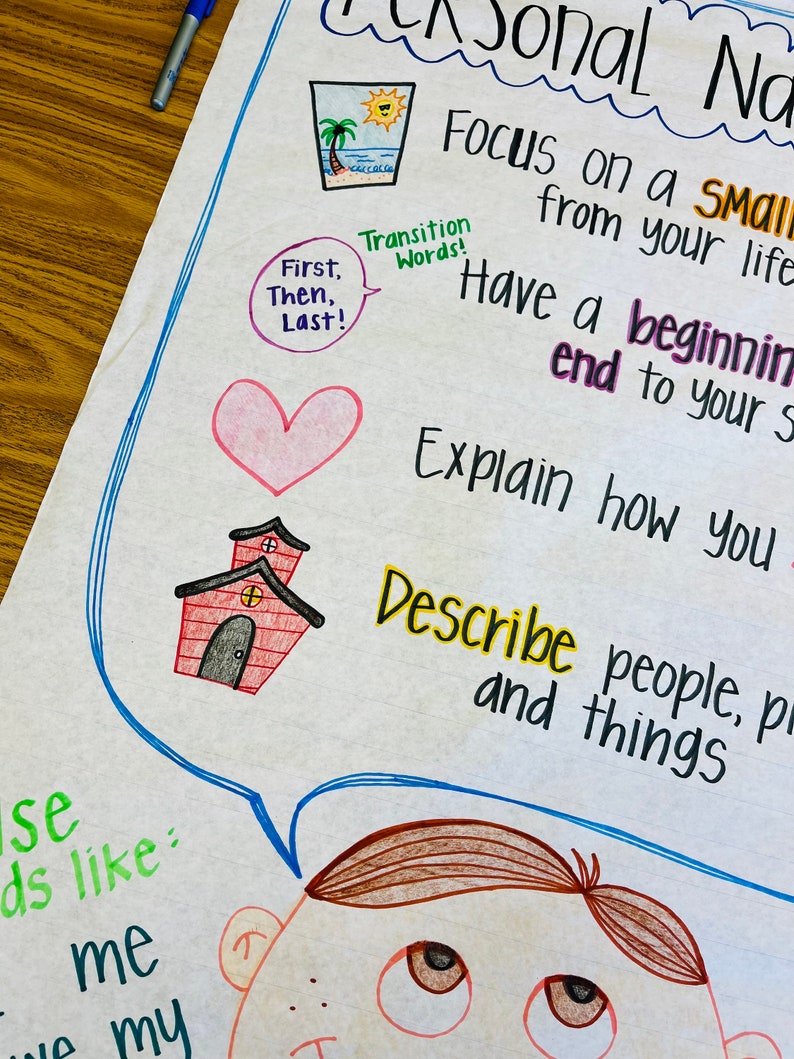 Personal Na
Focus on a small
from your life
Transition
Words!
First,
Then,
Last!
Have a beginnin
end to your s
Explain how you
Describe people, pl
and things
like:
me
my